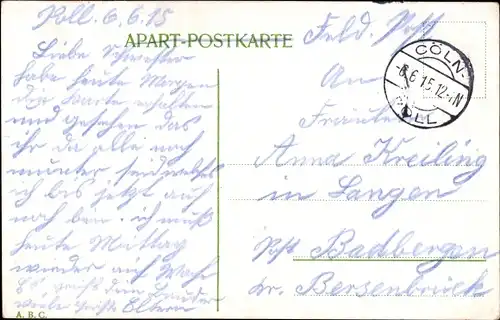 Poll. 6.6.15
APART-POSTKARTE
Feld-Post
Liebe Schwester
habe heute Morgen
die Karte erhalten
und gesehen das
ihr da alle noch
munter seid welches
ich bis jetzt auch
noch bin. ich muß
heute Mittag
wieder auf Wach
Es grüßt dein Bruder
viele Grüße Eltern
A. B. C.
CÖLN-
-6.6.15.12-1N
POLL
An
Fräulein
Anna Kreiling
in Langen
Post Badbergen
Kr. Bersenbrück